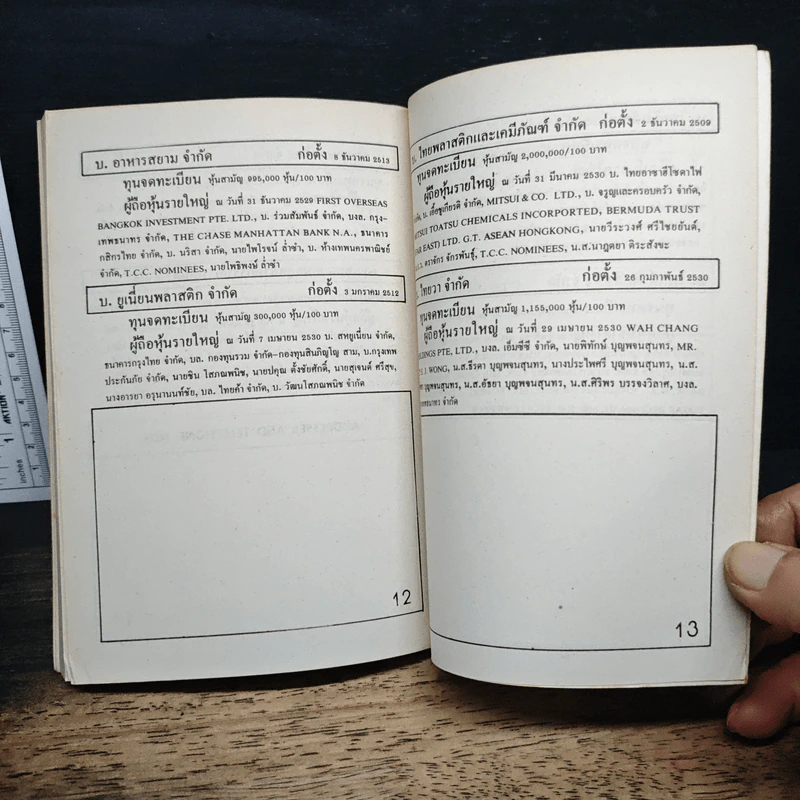 บ. อาหารสยาม จำกัด ก่อตั้ง 8 ธันวาคม 2513
ทุนจดทะเบียน หุ้นสามัญ 995,000 หุ้น/100 บาท
ผู้ถือหุ้นรายใหญ่ ณ วันที่ 31 ธันวาคม 2529 FIRST OVERSEAS
BANGKOK INVESTMENT PTE. LTD., บ. ร่วมสัมพันธ์ จำกัด, บงล. กรุง-
เทพธนาทร จำกัด, THE CHASE MANHATTAN BANK N.A., ธนาคาร
กสิกรไทย จำกัด, บ. นริสา จำกัด, นายไพโรจน์ ล่ำซำ, บ. ห้างเทพนครพาณิชย์
จำกัด, T.C.C. NOMINEES, นายโพธิพงษ์ ล่ำซำ
บ. ยูเนี่ยนพลาสติก จำกัด ก่อตั้ง 3 มกราคม 2512
ทุนจดทะเบียน หุ้นสามัญ 300,000 หุ้น/100 บาท
ผู้ถือหุ้นรายใหญ่ ณ วันที่ 7 เมษายน 2530 บ. สหยูเนี่ยน จำกัด,
ธนาคารกรุงไทย จำกัด, บล. กองทุนรวม จำกัด-กองทุนสินภิญโญ สาม, บ.กรุงเทพ
ประกันภัย จำกัด, นายชิน โสภณพนิช, นายปคุณ ตั้งชัยศักดิ์, นายสุเจนต์ ศรีสุข,
นางอารยา อรุนานนท์ชัย, บล. ไทยค้า จำกัด, บ. วัฒนโสภณพนิช จำกัด
12
บ. ไทยพลาสติกและเคมีภัณฑ์ จำกัด ก่อตั้ง 2 ธันวาคม 2509
ทุนจดทะเบียน หุ้นสามัญ 2,000,000/100 บาท
ผู้ถือหุ้นรายใหญ่ ณ วันที่ 31 มีนาคม 2530 บ. ไทยอาซาฮีโซดาไฟ
จำกัด, บ. เอื้อชูเกียรติ จำกัด, MITSUI & CO. LTD., บ. จรูญและครอบครัว จำกัด,
MITSUI TOATSU CHEMICALS INCORPORTED, BERMUDA TRUST
(FAR EAST) LTD. G.T. ASEAN HONGKONG, นายวีระวงศ์ ศรีไชยยันต์,
ดราจักร จักรพันธุ์, T.C.C. NOMINEES, น.ส.นาฎดยา ดิระสังขะ
บ. ไทยวา จำกัด ก่อตั้ง 26 กุมภาพันธ์ 2530
ทุนจดทะเบียน หุ้นสามัญ 1,155,000 หุ้น/100 บาท
ผู้ถือหุ้นรายใหญ่ ณ วันที่ 29 เมษายน 2530 WAH CHANG
HOLDINGS PTE, LTD., บงล. เอ็มซีซี จำกัด, นายพิทักษ์ บุญพจนสุนทร, MR.
J. WONG, น.ส.ธีรดา บุญพจนสุนทร, นางประไพศรี บุญพจนสุนทร, น.ส.
บุญพจนสุนทร, น.ส.อัธยา บุญพจนสุนทร, น.ส.ศิริพร บรรจงวิลาศ, บงล.
จำกัด
13
inches
1
2
3